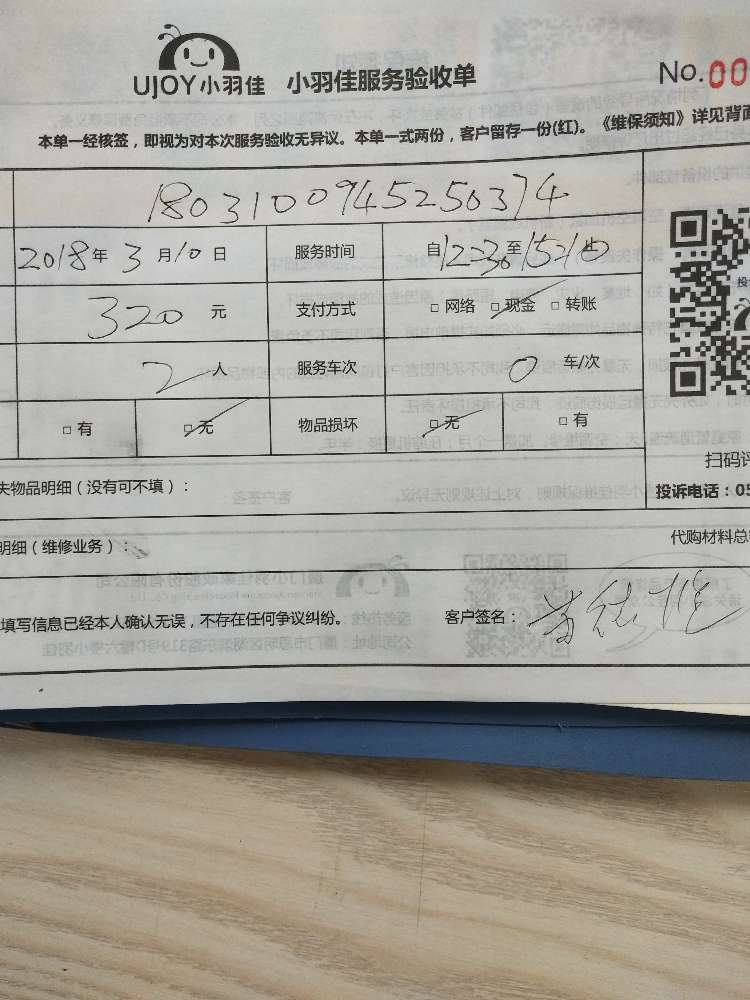 UJOY小羽佳 小羽佳服务验收单 No.00
本单一经核签，即视为对本次服务验收无异议。本单一式两份，客户留存一份(红)。《维保须知》详见背面
1803100945250374
2018年3月10日 服务时间 自12:30至15:10止
320元 支付方式 □ 网络 □ 现金 □ 转账
2人 服务车次 0车/次
□ 有 □ 无 物品损坏 □ 无 □ 有
扫码评
失物品明细（没有可不填）： 投诉电话：05
明细（维修业务）： 代购材料总
填写信息已经本人确认无误，不存在任何争议纠纷。 客户签名：